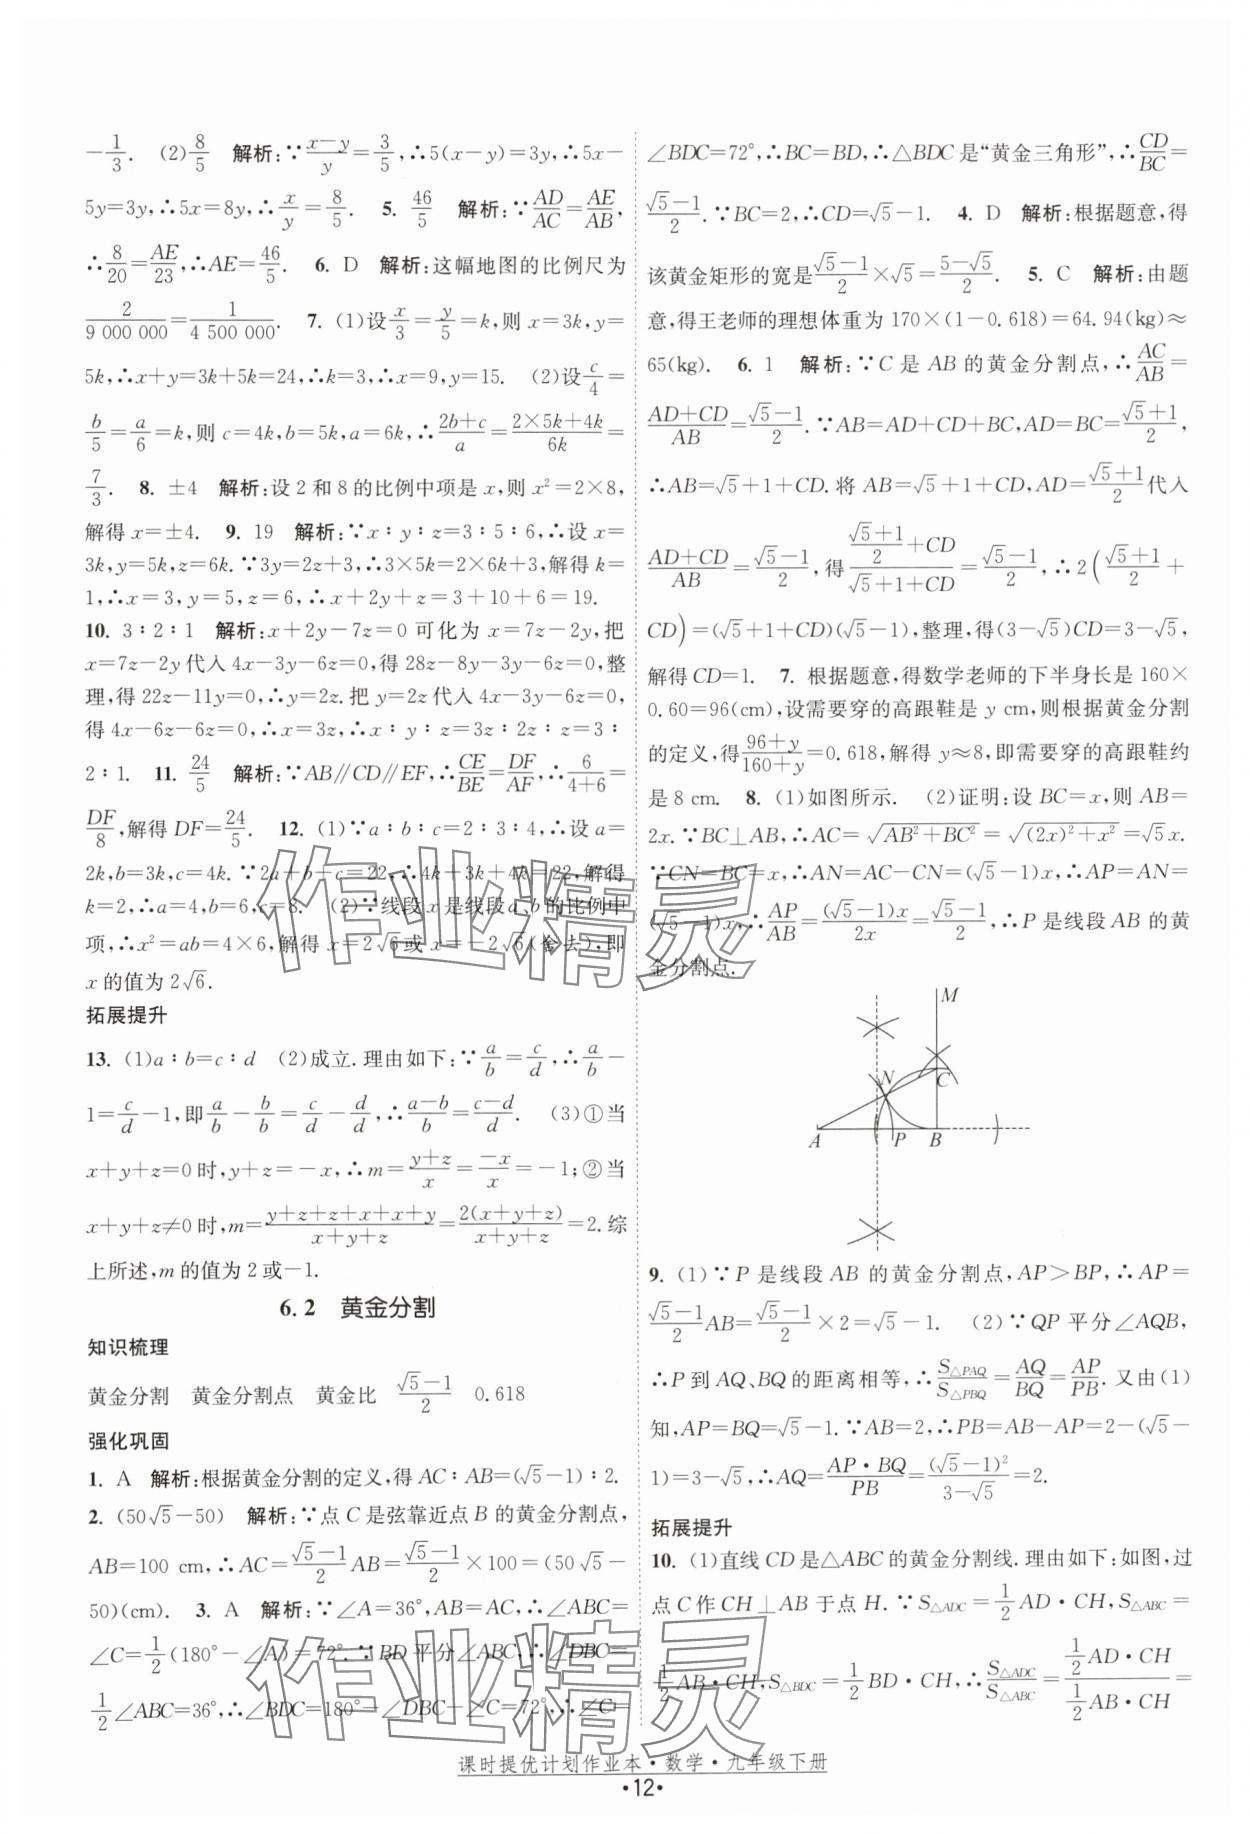 -1/3. (2)8/5 解析:∵(x-y)/y=3/5,∴5(x-y)=3y,∴5x-
5y=3y,∴5x=8y,∴x/y=8/5. 5. 46/5 解析:∵AD/AC=AE/AB,
∴8/20=AE/23,∴AE=46/5. 6. D 解析:这幅地图的比例尺为
2/9 000 000=1/4 500 000. 7. (1)设x/3=y/5=k,则 x=3k,y=
5k,∴x+y=3k+5k=24,∴k=3,∴x=9,y=15. (2)设c/4=
b/5=a/6=k,则 c=4k,b=5k,a=6k,∴(2b+c)/a=(2×5k+4k)/6k=
7/3. 8. ±4 解析:设 2 和 8 的比例中项是 x,则 x²=2×8,
解得 x=±4. 9. 19 解析:∵x∶y∶z=3∶5∶6,∴设 x=
3k,y=5k,z=6k.∵3y=2z+3,∴3×5k=2×6k+3,解得 k=
1,∴x=3,y=5,z=6,∴x+2y+z=3+10+6=19.
10. 3∶2∶1 解析:x+2y-7z=0 可化为 x=7z-2y,把
x=7z-2y 代入 4x-3y-6z=0,得 28z-8y-3y-6z=0,整
理,得 22z-11y=0,∴y=2z.把 y=2z 代入 4x-3y-6z=0,
得 4x-6z-6z=0,∴x=3z,∴x∶y∶z=3z∶2z∶z=3∶
2∶1. 11. 24/5 解析:∵AB∥CD∥EF,∴CE/BE=DF/AF,∴6/(4+6)=
DF/8,解得 DF=24/5. 12. (1)∵a∶b∶c=2∶3∶4,∴设 a=
2k,b=3k,c=4k.∵2a+b+c=22,∴4k+3k+4k=22,解得
k=2,∴a=4,b=6,c=8. (2)∵线段 x 是线段 a、b 的比例中
项,∴x²=ab=4×6,解得 x=2√6或 x=-2√6(舍去),即
x 的值为 2√6.
拓展提升
13. (1)a∶b=c∶d (2)成立.理由如下:∵a/b=c/d,∴a/b-
1=c/d-1,即a/b-b/b=c/d-d/d,∴(a-b)/b=(c-d)/d. (3)①当
x+y+z=0 时,y+z=-x,∴m=(y+z)/x=-x/x=-1;②当
x+y+z≠0 时,m=(y+z+z+x+x+y)/(x+y+z)=2(x+y+z)/(x+y+z)=2.综
上所述,m 的值为 2 或-1.
6.2 黄金分割
知识梳理
黄金分割 黄金分割点 黄金比 (√5-1)/2 0.618
强化巩固
1. A 解析:根据黄金分割的定义,得 AC∶AB=(√5-1)∶2.
2. (50√5-50) 解析:∵点 C 是弦靠近点 B 的黄金分割点,
AB=100 cm,∴AC=(√5-1)/2 AB=(√5-1)/2×100=(50√5-
50)(cm). 3. A 解析:∵∠A=36°,AB=AC,∴∠ABC=
∠C=1/2(180°-∠A)=72°.∵BD 平分∠ABC,∴∠DBC=
1/2∠ABC=36°,∴∠BDC=180°-∠DBC-∠C=72°,∴∠C=
∠BDC=72°,∴BC=BD,∴△BDC 是“黄金三角形”,∴CD/BC=
(√5-1)/2.∵BC=2,∴CD=√5-1. 4. D 解析:根据题意,得
该黄金矩形的宽是(√5-1)/2×√5=(5-√5)/2. 5. C 解析:由题
意,得王老师的理想体重为 170×(1-0.618)=64.94(kg)≈
65(kg). 6. 1 解析:∵C 是 AB 的黄金分割点,∴AC/AB=
(AD+CD)/AB=(√5-1)/2.∵AB=AD+CD+BC,AD=BC=(√5+1)/2,
∴AB=√5+1+CD.将 AB=√5+1+CD,AD=(√5+1)/2代入
(AD+CD)/AB=(√5-1)/2,得((√5+1)/2+CD)/(√5+1+CD)=(√5-1)/2,∴2((√5+1)/2+
CD)=(√5+1+CD)(√5-1),整理,得(3-√5)CD=3-√5,
解得 CD=1. 7. 根据题意,得数学老师的下半身长是 160×
0.60=96(cm),设需要穿的高跟鞋是 y cm,则根据黄金分割
的定义,得(96+y)/(160+y)=0.618,解得 y≈8,即需要穿的高跟鞋约
是 8 cm. 8. (1)如图所示. (2)证明:设 BC=x,则 AB=
2x.∵BC⊥AB,∴AC=√(AB²+BC²)=√((2x)²+x²)=√5x.
∵CN=BC=x,∴AN=AC-CN=(√5-1)x,∴AP=AN=
(√5-1)x,∴AP/AB=(√5-1)x/2x=(√5-1)/2,∴P 是线段 AB 的黄
金分割点.
M
N
C
A
P
B
9. (1)∵P 是线段 AB 的黄金分割点,AP>BP,∴AP=
(√5-1)/2 AB=(√5-1)/2×2=√5-1. (2)∵QP 平分∠AQB,
∴P 到 AQ、BQ 的距离相等,∴S△PAQ/S△PBQ=AQ/BQ=AP/PB.又由(1)
知,AP=BQ=√5-1.∵AB=2,∴PB=AB-AP=2-(√5-
1)=3-√5,∴AQ=(AP·BQ)/PB=(√5-1)²/(3-√5)=2.
拓展提升
10. (1)直线 CD 是△ABC 的黄金分割线.理由如下:如图,过
点 C 作 CH⊥AB 于点 H.∵S△ADC=1/2 AD·CH,S△ABC=
1/2 AB·CH,S△BDC=1/2 BD·CH,∴S△ADC/S△ABC=(1/2 AD·CH)/(1/2 AB·CH)=
课时提优计划作业本·数学·九年级下册
·12·
作业精灵
作业精灵